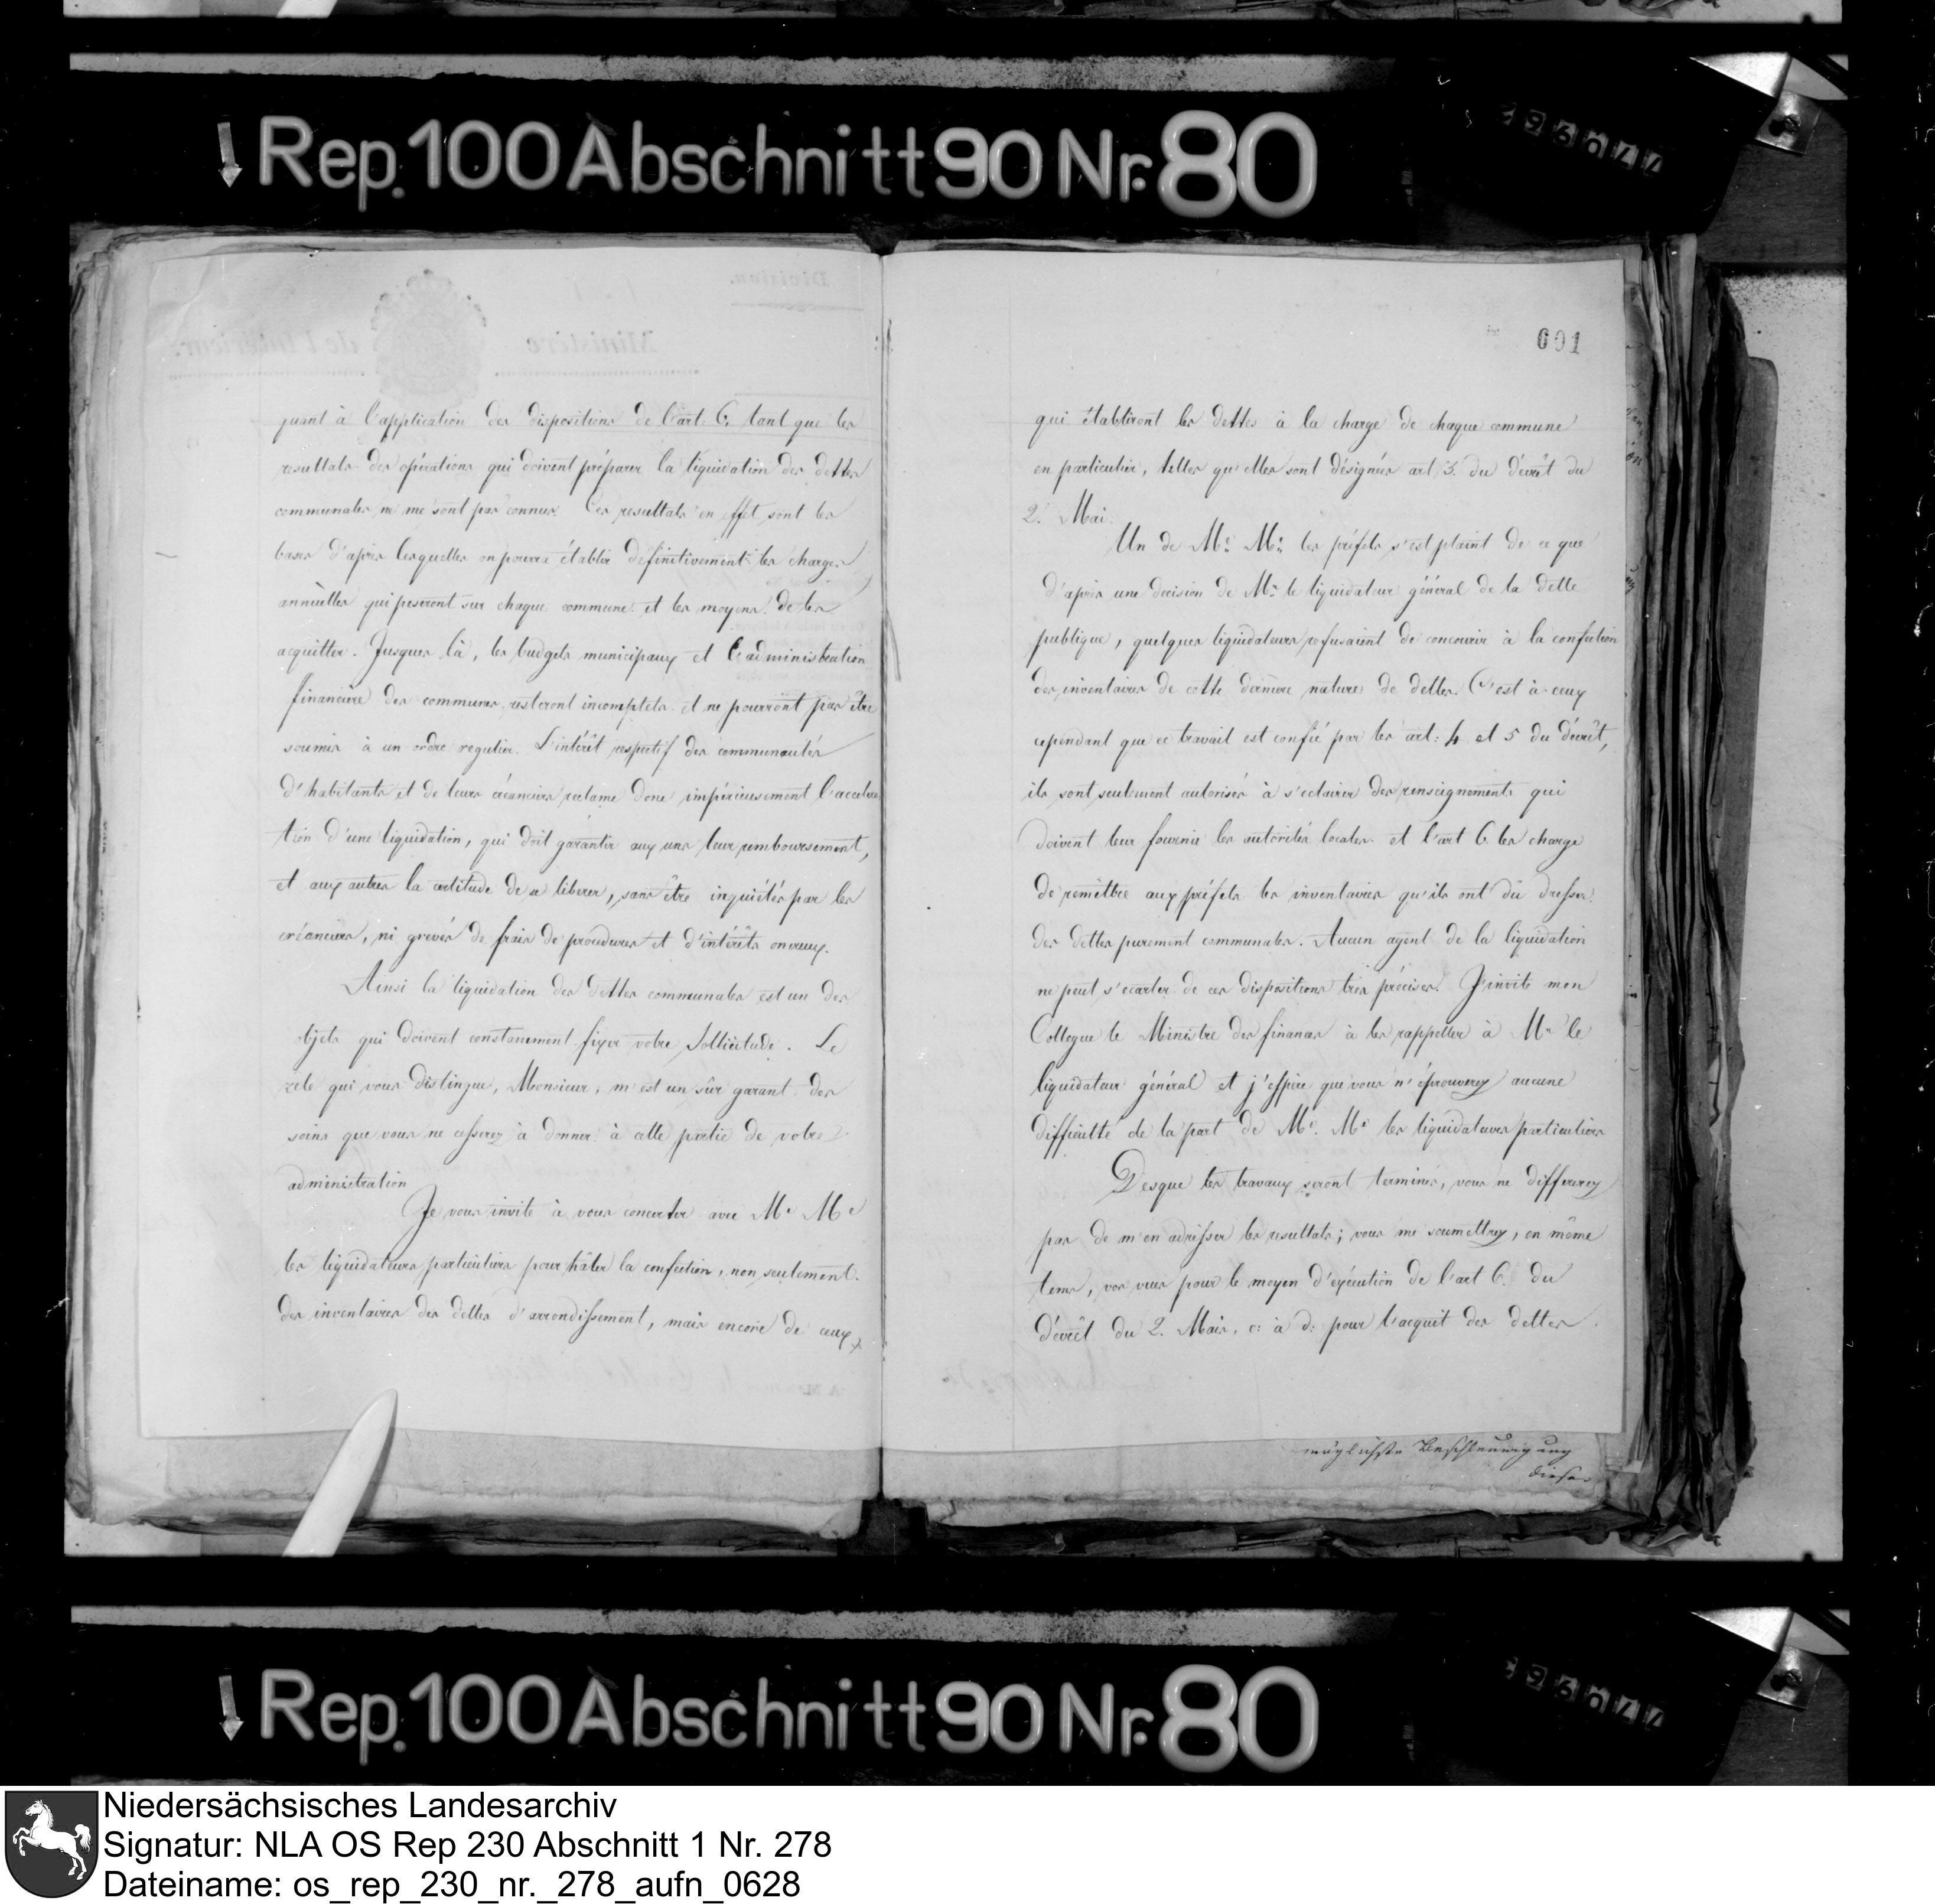 Rep. 100 Abschnitt 90 Nr. 80
601
quant à l'application des dispositions de l'art 6. tant que les
resultats des opérations qui doivent préparer la liquidation des dettes
communales ne me sont pas connus. Ces resultats en effet sont les
bases d'après lesquelles on pourra établir définitivement les charges
annuelles qui peseront sur chaque commune et les moyens de les
acquitter. Jusques là, les budgets municipaux et l'administration
financière des communes resteront incomplets et ne pourront pas être
soumis à un ordre regulier. L'intérêt respectif des communautés
d'habitants et de leurs créanciers reclame donc impérieusement l'accelera
tion d'une liquidation, qui doit garantir aux uns leur remboursement,
et aux autres la certitude de se liberer, sans être inquiétés par les
créanciers, ni grevés de frais de procedures et d'intérêts onereux.
Ainsi la liquidation des dettes communales est un des
objets qui doivent constamment fixer votre sollicitude. Le
zèle qui vous distingue, Monsieur, m'est un sûr garant des
soins que vous ne cesserez à donner à cette partie de votre
administration
Je vous invite à vous concerter avec Mr Mr
les liquidateurs particuliers pour hâter la confection, non seulement
des inventaires des dettes d'arrondissement, mais encore de ceux
qui établiront les dettes à la charge de chaque commune
en particulier, telles qu'elles sont désignées art 3. du décrêt du
2. Mai.
Un de Mr. Mr. les préfets s'est plaint de ce que
d'après une decision de Mr. le liquidateur général de la dette
publique, quelques liquidateurs refusaient de concourir à la confection
des inventaires de cette dernière nature de dettes. C'est à ceux
cependant que ce travail est confié par les art: 4 et 5 du décrêt,
ils sont seulement autorisés à s'eclairer des renseignements qui
doivent leur fournir les autorités locales et l'art 6. les charge
de remettre aux préfets les inventaires qu'ils ont dû dresser
des dettes purement communales. Aucun agent de la liquidation
ne peut s'ecarter de ces dispositions très précises. J'invite mon
Collegue le Ministre des finances à les rappeller à Mr le
liquidateur général et j'espère que vous n'éprouverez aucune
difficulté de la part de Mr. Mr les liquidateurs particuliers
Desque les travaux seront terminés, vous ne differerez
pas de m'en adresser les resultats; vous me soumettrez, en même
tems, vos vues pour le moyen d'exécution de l'art 6. du
décrêt du 2. Mai, c: à d: pour l'acquit des dettes
möglichste Beschleunigung
dieser
Rep. 100 Abschnitt 90 Nr. 80
Niedersächsisches Landesarchiv
Signatur: NLA OS Rep 230 Abschnitt 1 Nr. 278
Dateiname: os_rep_230_nr._278_aufn_0628